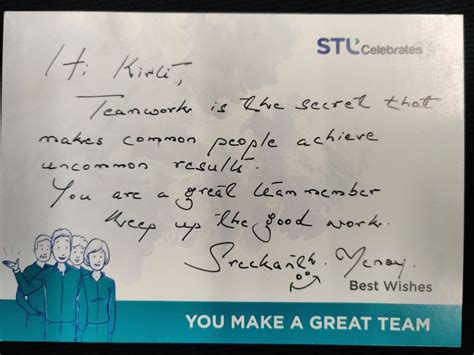 STL Celebrates
Hi Kirti,
Teamwork is the secret that
makes common people achieve
uncommon results.
You are a great team member
Keep up the good work.
Best Wishes
YOU MAKE A GREAT TEAM